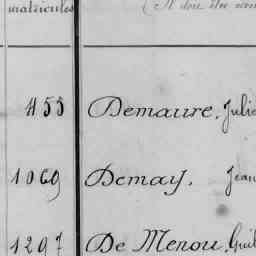 matricules (Il doit être
455 Demaure, Julie
1069 Demay, Jean
1297 De Menou, Guil